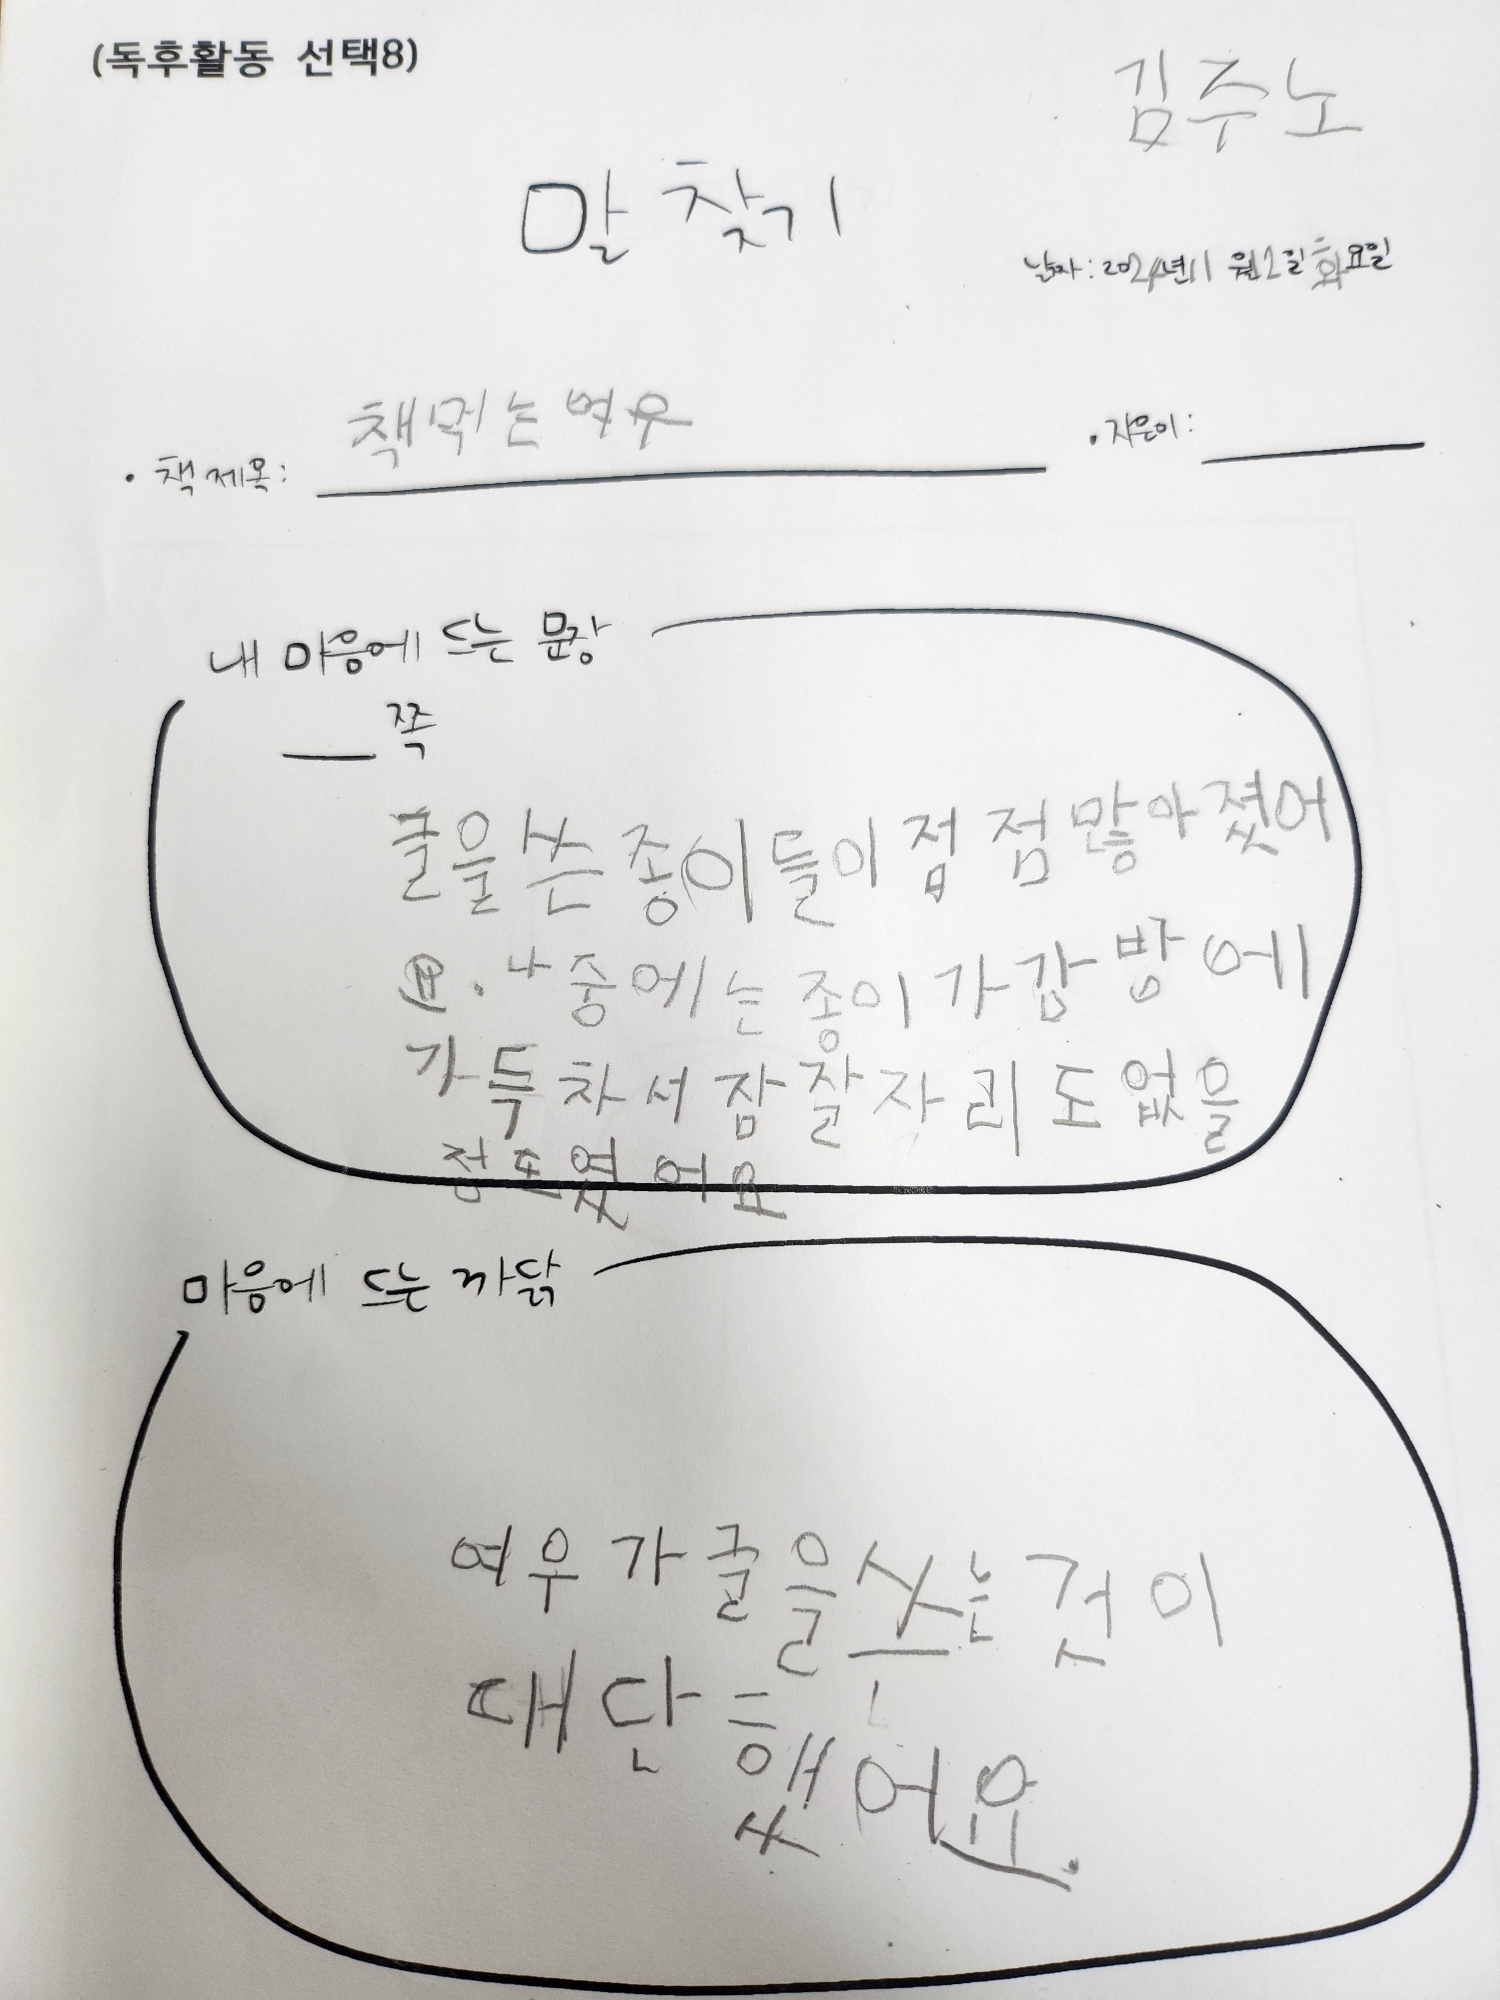 (독후활동 선택8)
김주노
말 찾기
날짜: 2024년 11월 2일 화요일
• 책 제목: 책먹는여우
• 지은이:
내 마음에 드는 문장
쪽
글을 쓴 종이들이 점점 많아졌어
요. 나중에는 종이가 감방에
가득차서 잠잘자리도없을
정도였어요
마음에 드는 까닭
여우가 글을 쓰는 것이
대단했어요.